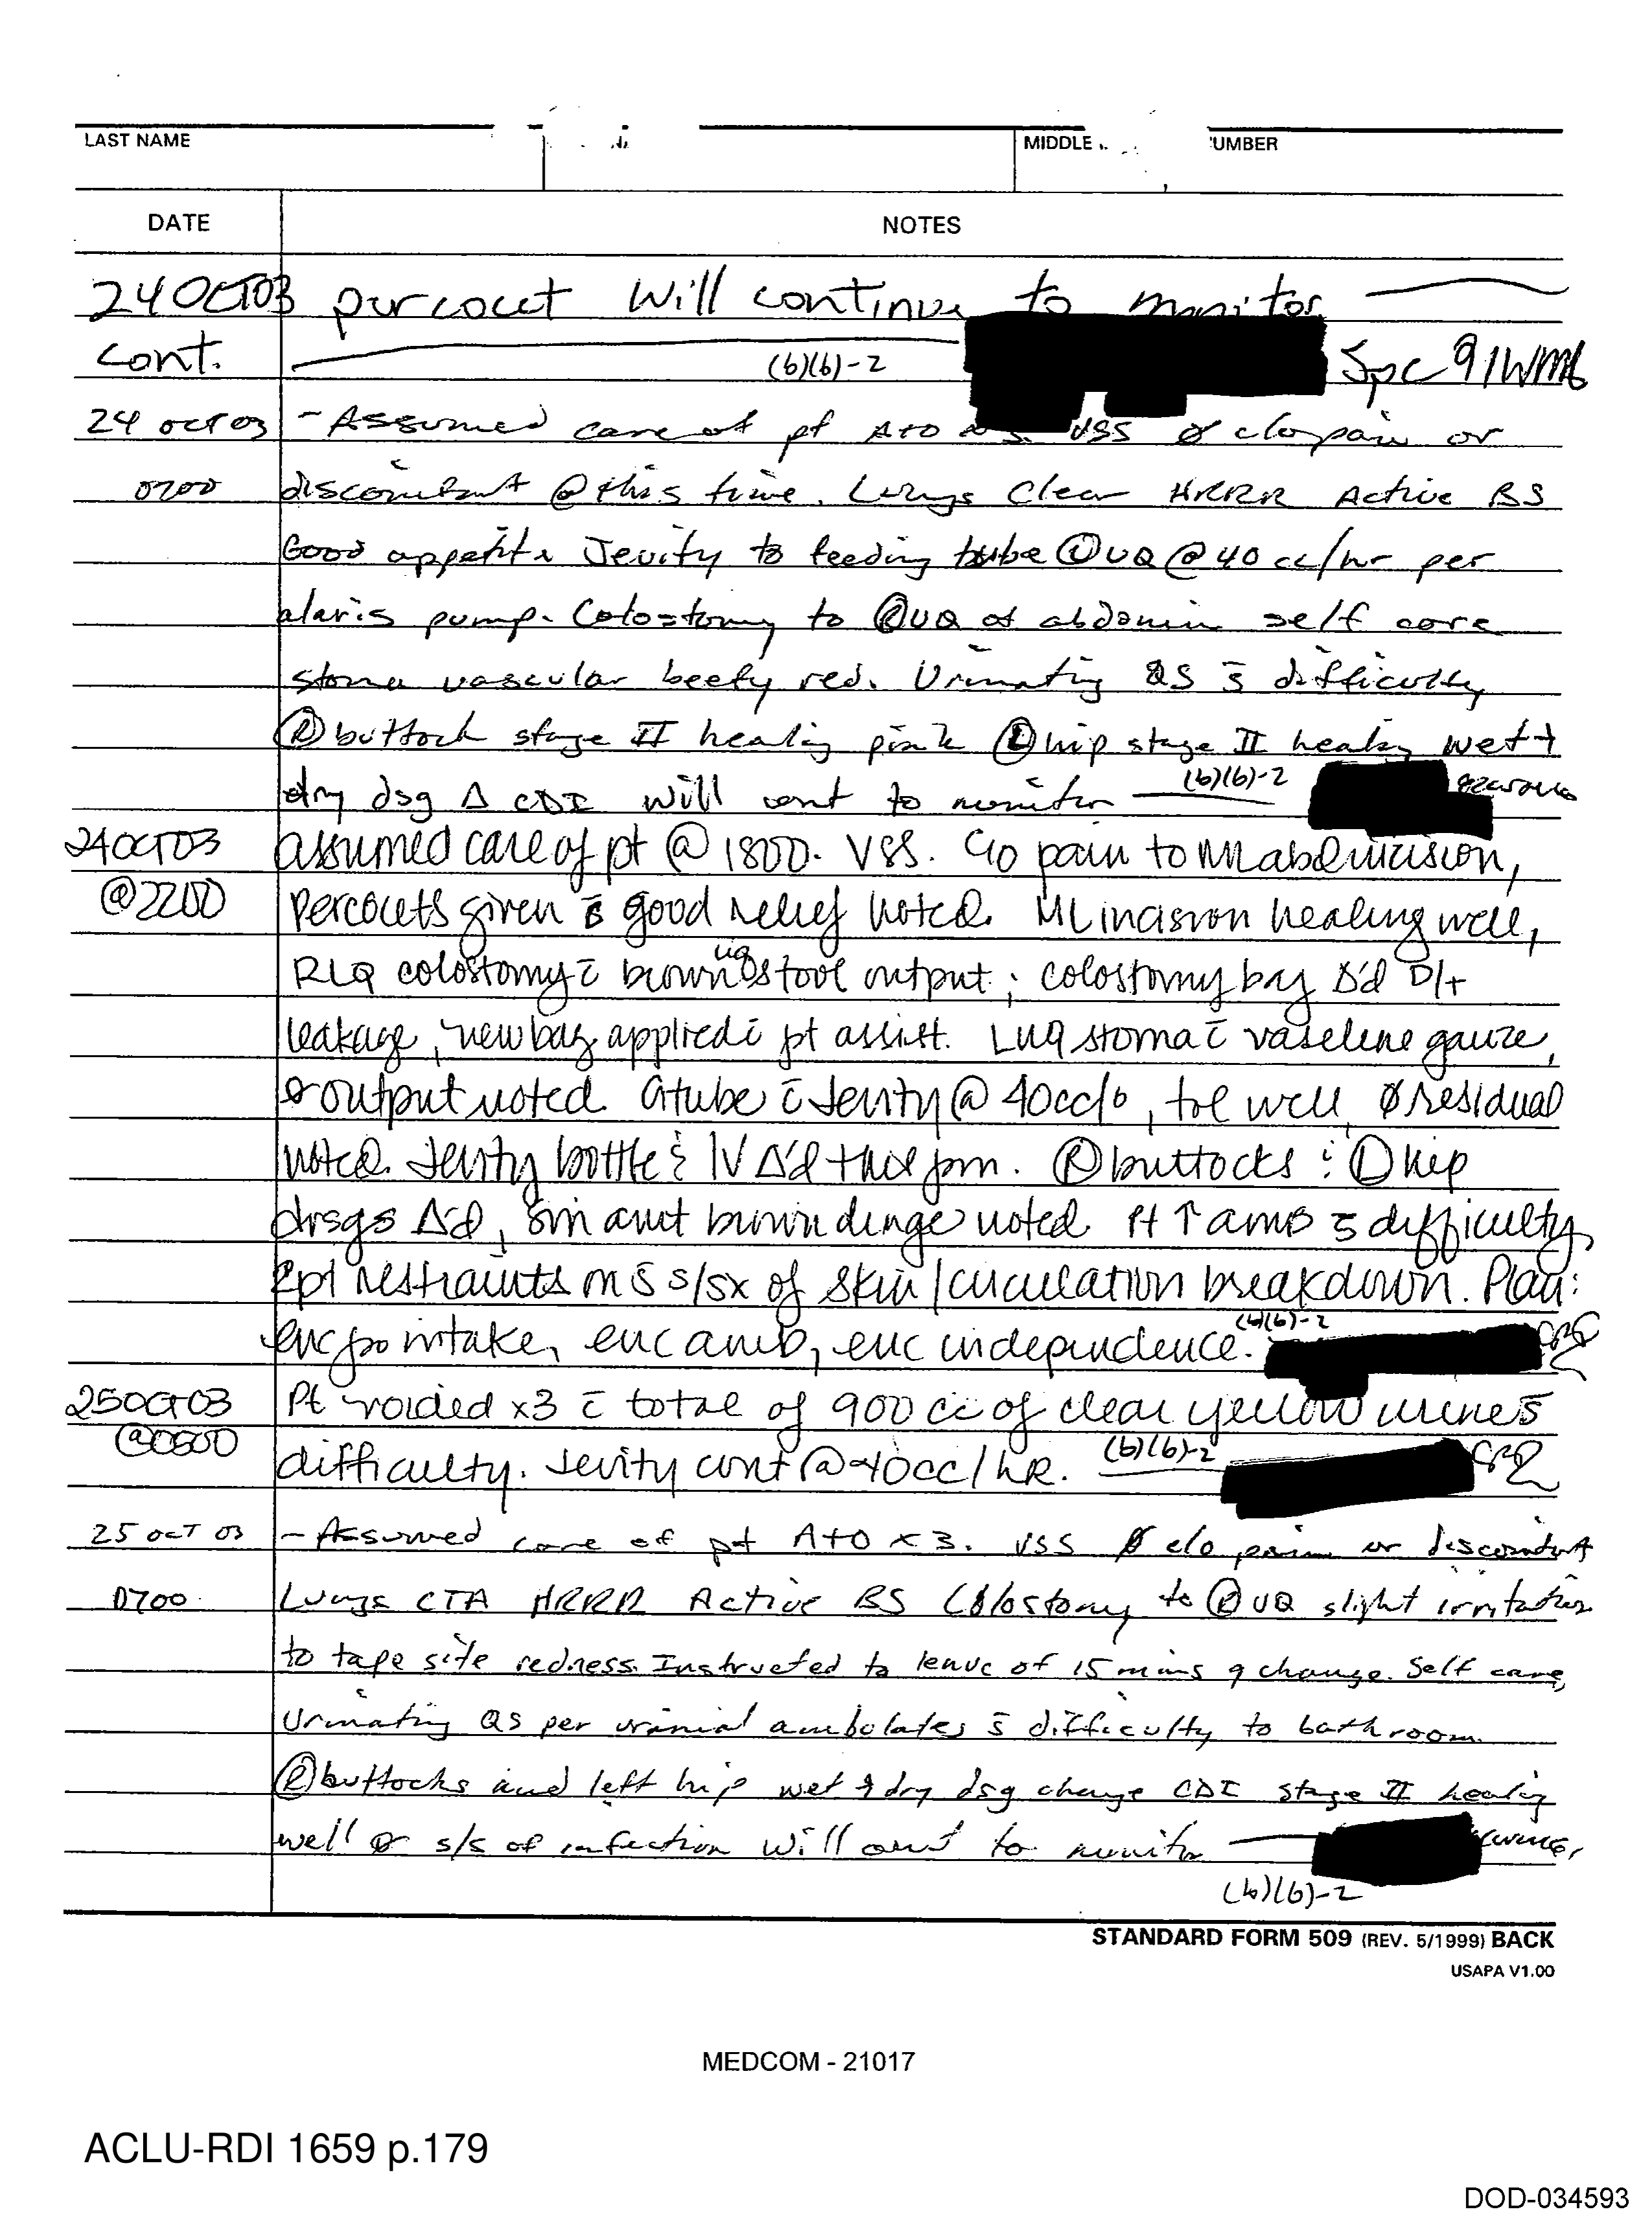 LAST NAME MIDDLE UMBER
DATE NOTES
24OCT03 percocet Will continue to monitor
cont. (b)(6)-2 Spc 91WM6
24 OCT 03 - Assumed care of pt A+O VSS Ø c/o pain or
0700 discomfort @ this time. Lungs Clear HRRR Active BS
Good appetite Jevity to feeding tube Ⓛ UQ @ 40 cc/hr per
alaris pump. Colostomy to Ⓡ UQ of abdomin self care
stoma vascular beefy red. Urinating QS s̄ difficulty
Ⓡ buttock stage II healing pink Ⓛ hip stage II healing wet +
dry dsg Δ CDI will cont to monitor (b)(6)-2
24OCT03 assumed care of pt @ 1800. VSS. c/o pain to abd incision,
@2200 percocets given c̄ good relief noted. ML incision healing well,
RLQ colostomy c̄ brown liq stool output; colostomy bag Δ'd D/t
leakage, new bag applied c̄ pt assist. LUQ stoma c̄ vaseline gauze,
Ø output noted. Gtube c̄ Jevity @ 40cc/°, tol well, Ø residual
noted. Jevity bottle & IV Δ'd this pm. Ⓡ buttocks & Ⓛ hip
drsgs Δ'd, sm amt brown dnge noted. Pt ↑ amb s̄ difficulty,
2pt restraints on s̄ s/sx of skin/circulation breakdown. Plan:
enc po intake, enc amb, enc independence. (b)(6)-2
25OCT03 Pt voided x3 c̄ total of 900 cc of clear yellow urine s̄
@0500 difficulty. Jevity cont @ 40cc/hR. (b)(6)-2
25 OCT 03 - Assumed care of pt A+O x 3. VSS Ø c/o pain or discomfort
0700 Lungs CTA HRRR Active BS Colostomy to Ⓡ UQ slight irritation
to tape site redness. Instructed to leave of 15 mins q change. Self care,
Urinating QS per uranial ambolates s̄ difficulty to bathroom.
Ⓡ buttocks and left hip wet & dry dsg change CDI stage II healing
well Ø s/s of infection Will cont to monitor
(b)(6)-2
STANDARD FORM 509 (REV. 5/1999) BACK
USAPA V1.00
MEDCOM - 21017
ACLU-RDI 1659 p.179
DOD-034593